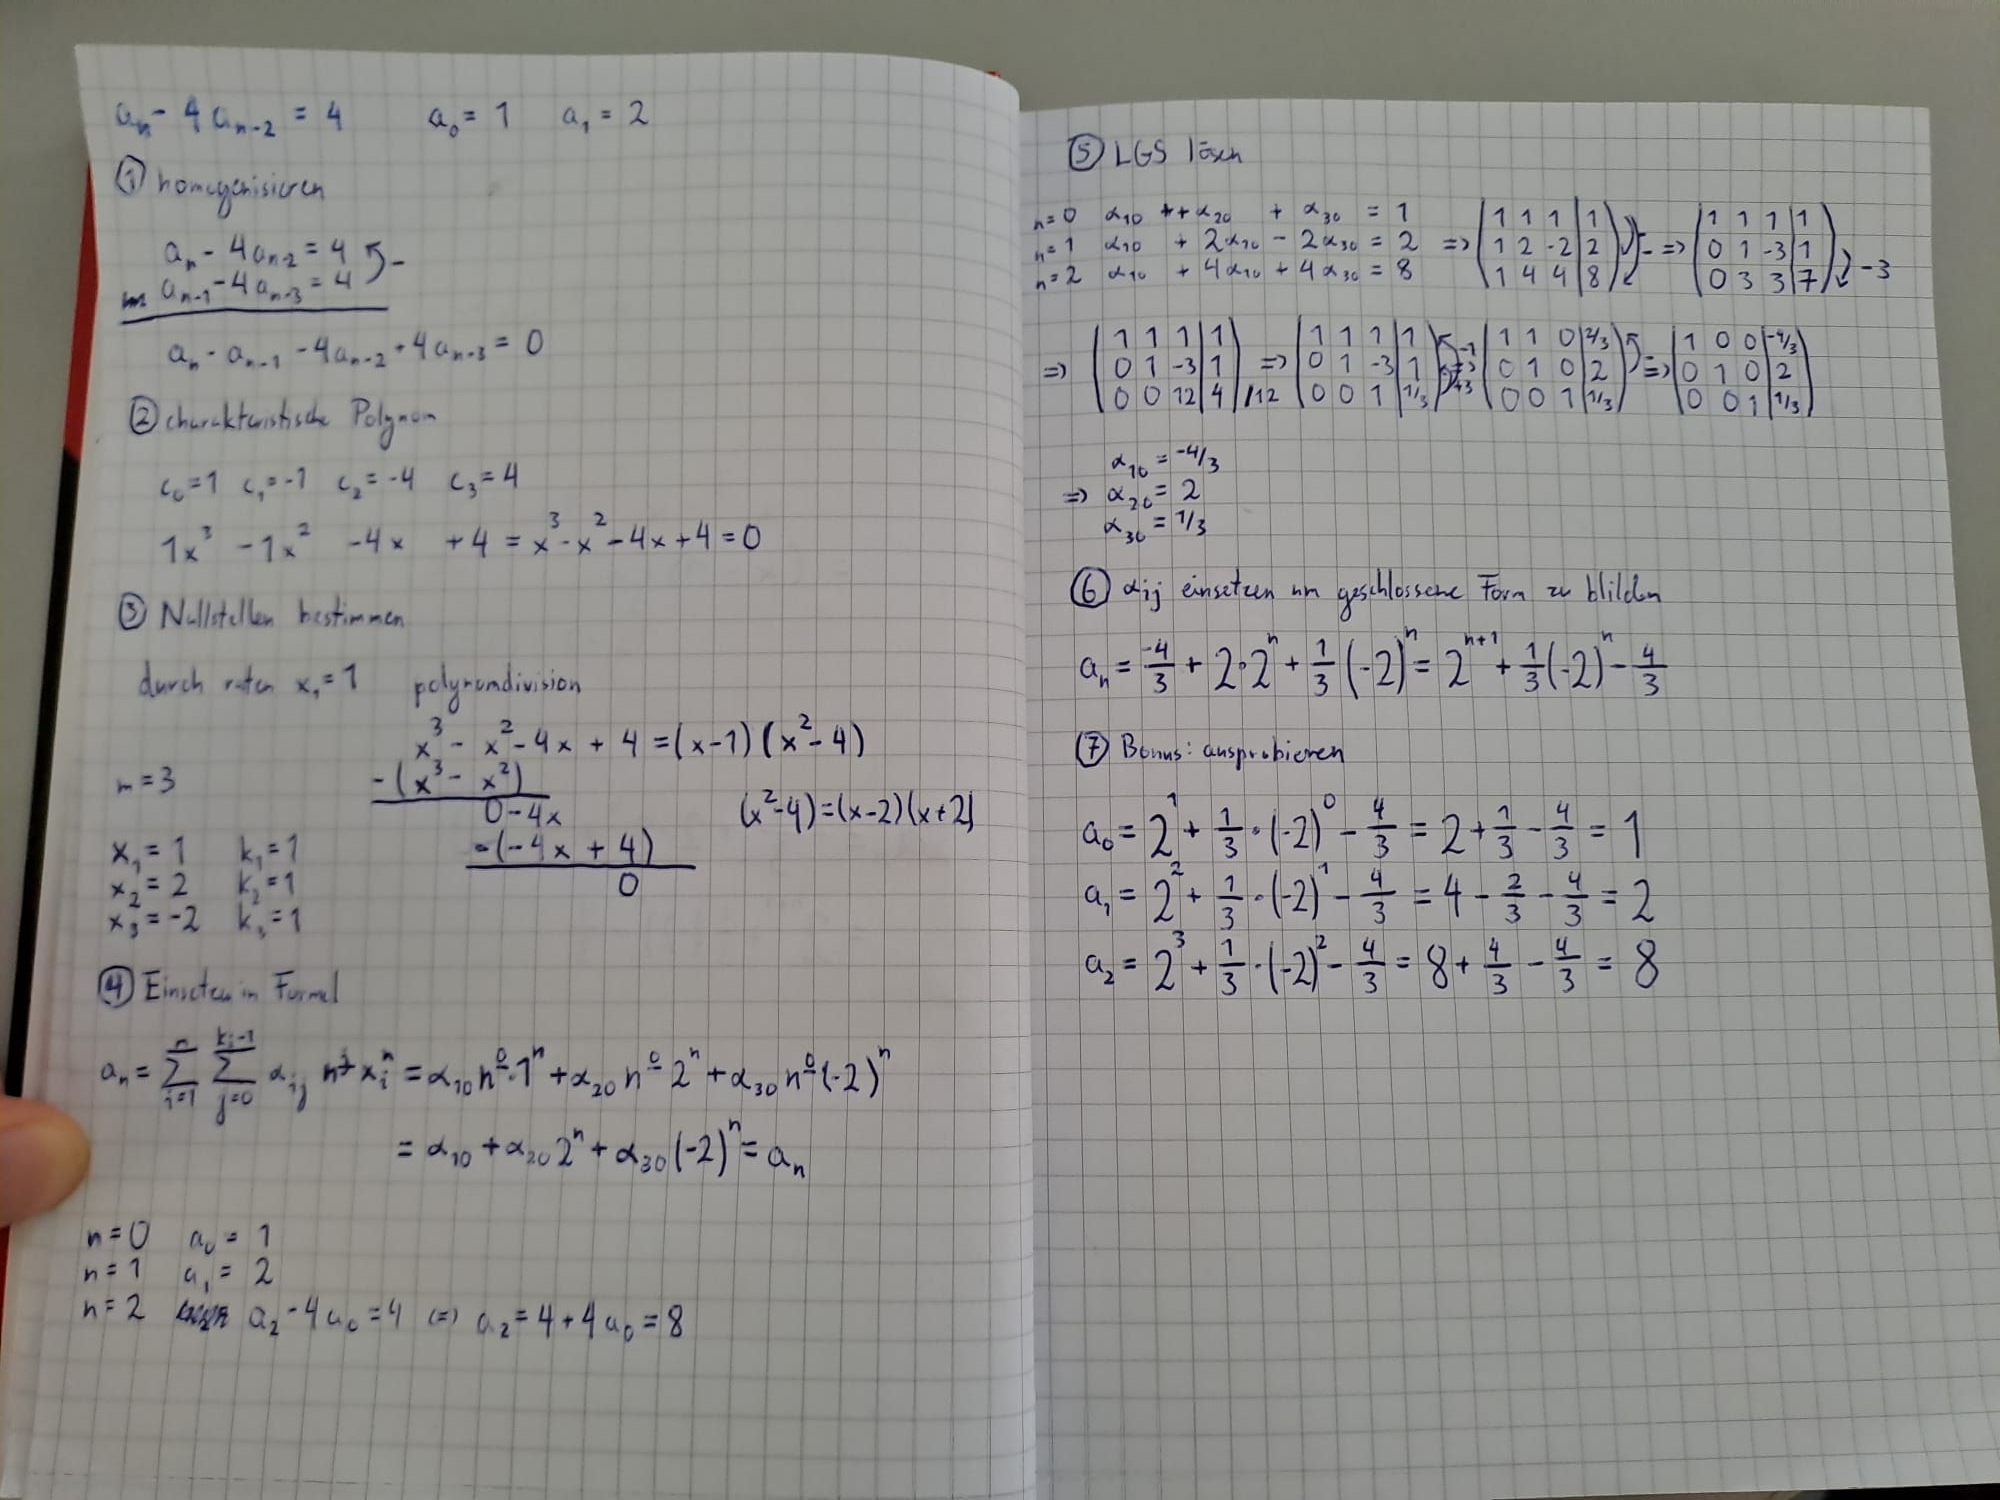 aₙ - 4aₙ₋₂ = 4   a₀ = 1   a₁ = 2
① homogenisieren
aₙ - 4aₙ₋₂ = 4
aₙ₋₁ - 4aₙ₋₃ = 4 ) -
aₙ - aₙ₋₁ - 4aₙ₋₂ + 4aₙ₋₃ = 0
② charakteristische Polynom
c₀ = 1  c₁ = -1  c₂ = -4  c₃ = 4
1x³ - 1x² - 4x + 4 = x³ - x² - 4x + 4 = 0
③ Nullstellen bestimmen
durch raten x₁ = 1   polynomdivision
x³ - x² - 4x + 4 = (x-1)(x²-4)
m = 3   -(x³ - x²)
0 - 4x   (x²-4) = (x-2)(x+2)
x₁ = 1   k₁ = 1   -(-4x + 4)
x₂ = 2   k₂ = 1   0
x₃ = -2   k₃ = 1
④ Einsetzen in Formel
aₙ = ∑ᵢ₌₁ⁿ ∑ⱼ₌₀^(kᵢ-1) αᵢⱼ n^j xᵢⁿ = α₁₀ n^0 · 1ⁿ + α₂₀ n^0 2ⁿ + α₃₀ n^0 (-2)ⁿ
= α₁₀ + α₂₀ 2ⁿ + α₃₀ (-2)ⁿ = aₙ
n = 0   a₀ = 1
n = 1   a₁ = 2
n = 2   a₂ - 4a₀ = 4 (=) a₂ = 4 + 4a₀ = 8
⑤ LGS lösen
n=0  α₁₀ + + α₂₀ + α₃₀ = 1   |1 1 1|1|   |1 1 1|1|
n=1  α₁₀ + 2α₁₀ - 2α₃₀ = 2 => |1 2 -2|2| - => |0 1 -3|1|
n=2  α₁₀ + 4α₁₀ + 4α₃₀ = 8   |1 4 4|8|   |0 3 3|7| ) -3
|1 1 1|1|   |1 1 1|1| -1   |1 1 0|2/3|   |1 0 0|-4/3|
=> |0 1 -3|1| => |0 1 -3|1| => |0 1 0|2| => |0 1 0|2|
|0 0 12|4| /12   |0 0 1|1/3| +3   |0 0 1|1/3|   |0 0 1|1/3|
α₁₀ = -4/3
=> α₂₀ = 2
α₃₀ = 1/3
⑥ αij einsetzen um geschlossene Form zu blilden
aₙ = -4/3 + 2·2ⁿ + 1/3 (-2)ⁿ = 2ⁿ⁺¹ + 1/3 (-2)ⁿ - 4/3
⑦ Bonus: ausprobieren
a₀ = 2¹ + 1/3 · (-2)⁰ - 4/3 = 2 + 1/3 - 4/3 = 1
a₁ = 2² + 1/3 · (-2)¹ - 4/3 = 4 - 2/3 - 4/3 = 2
a₂ = 2³ + 1/3 · (-2)² - 4/3 = 8 + 4/3 - 4/3 = 8